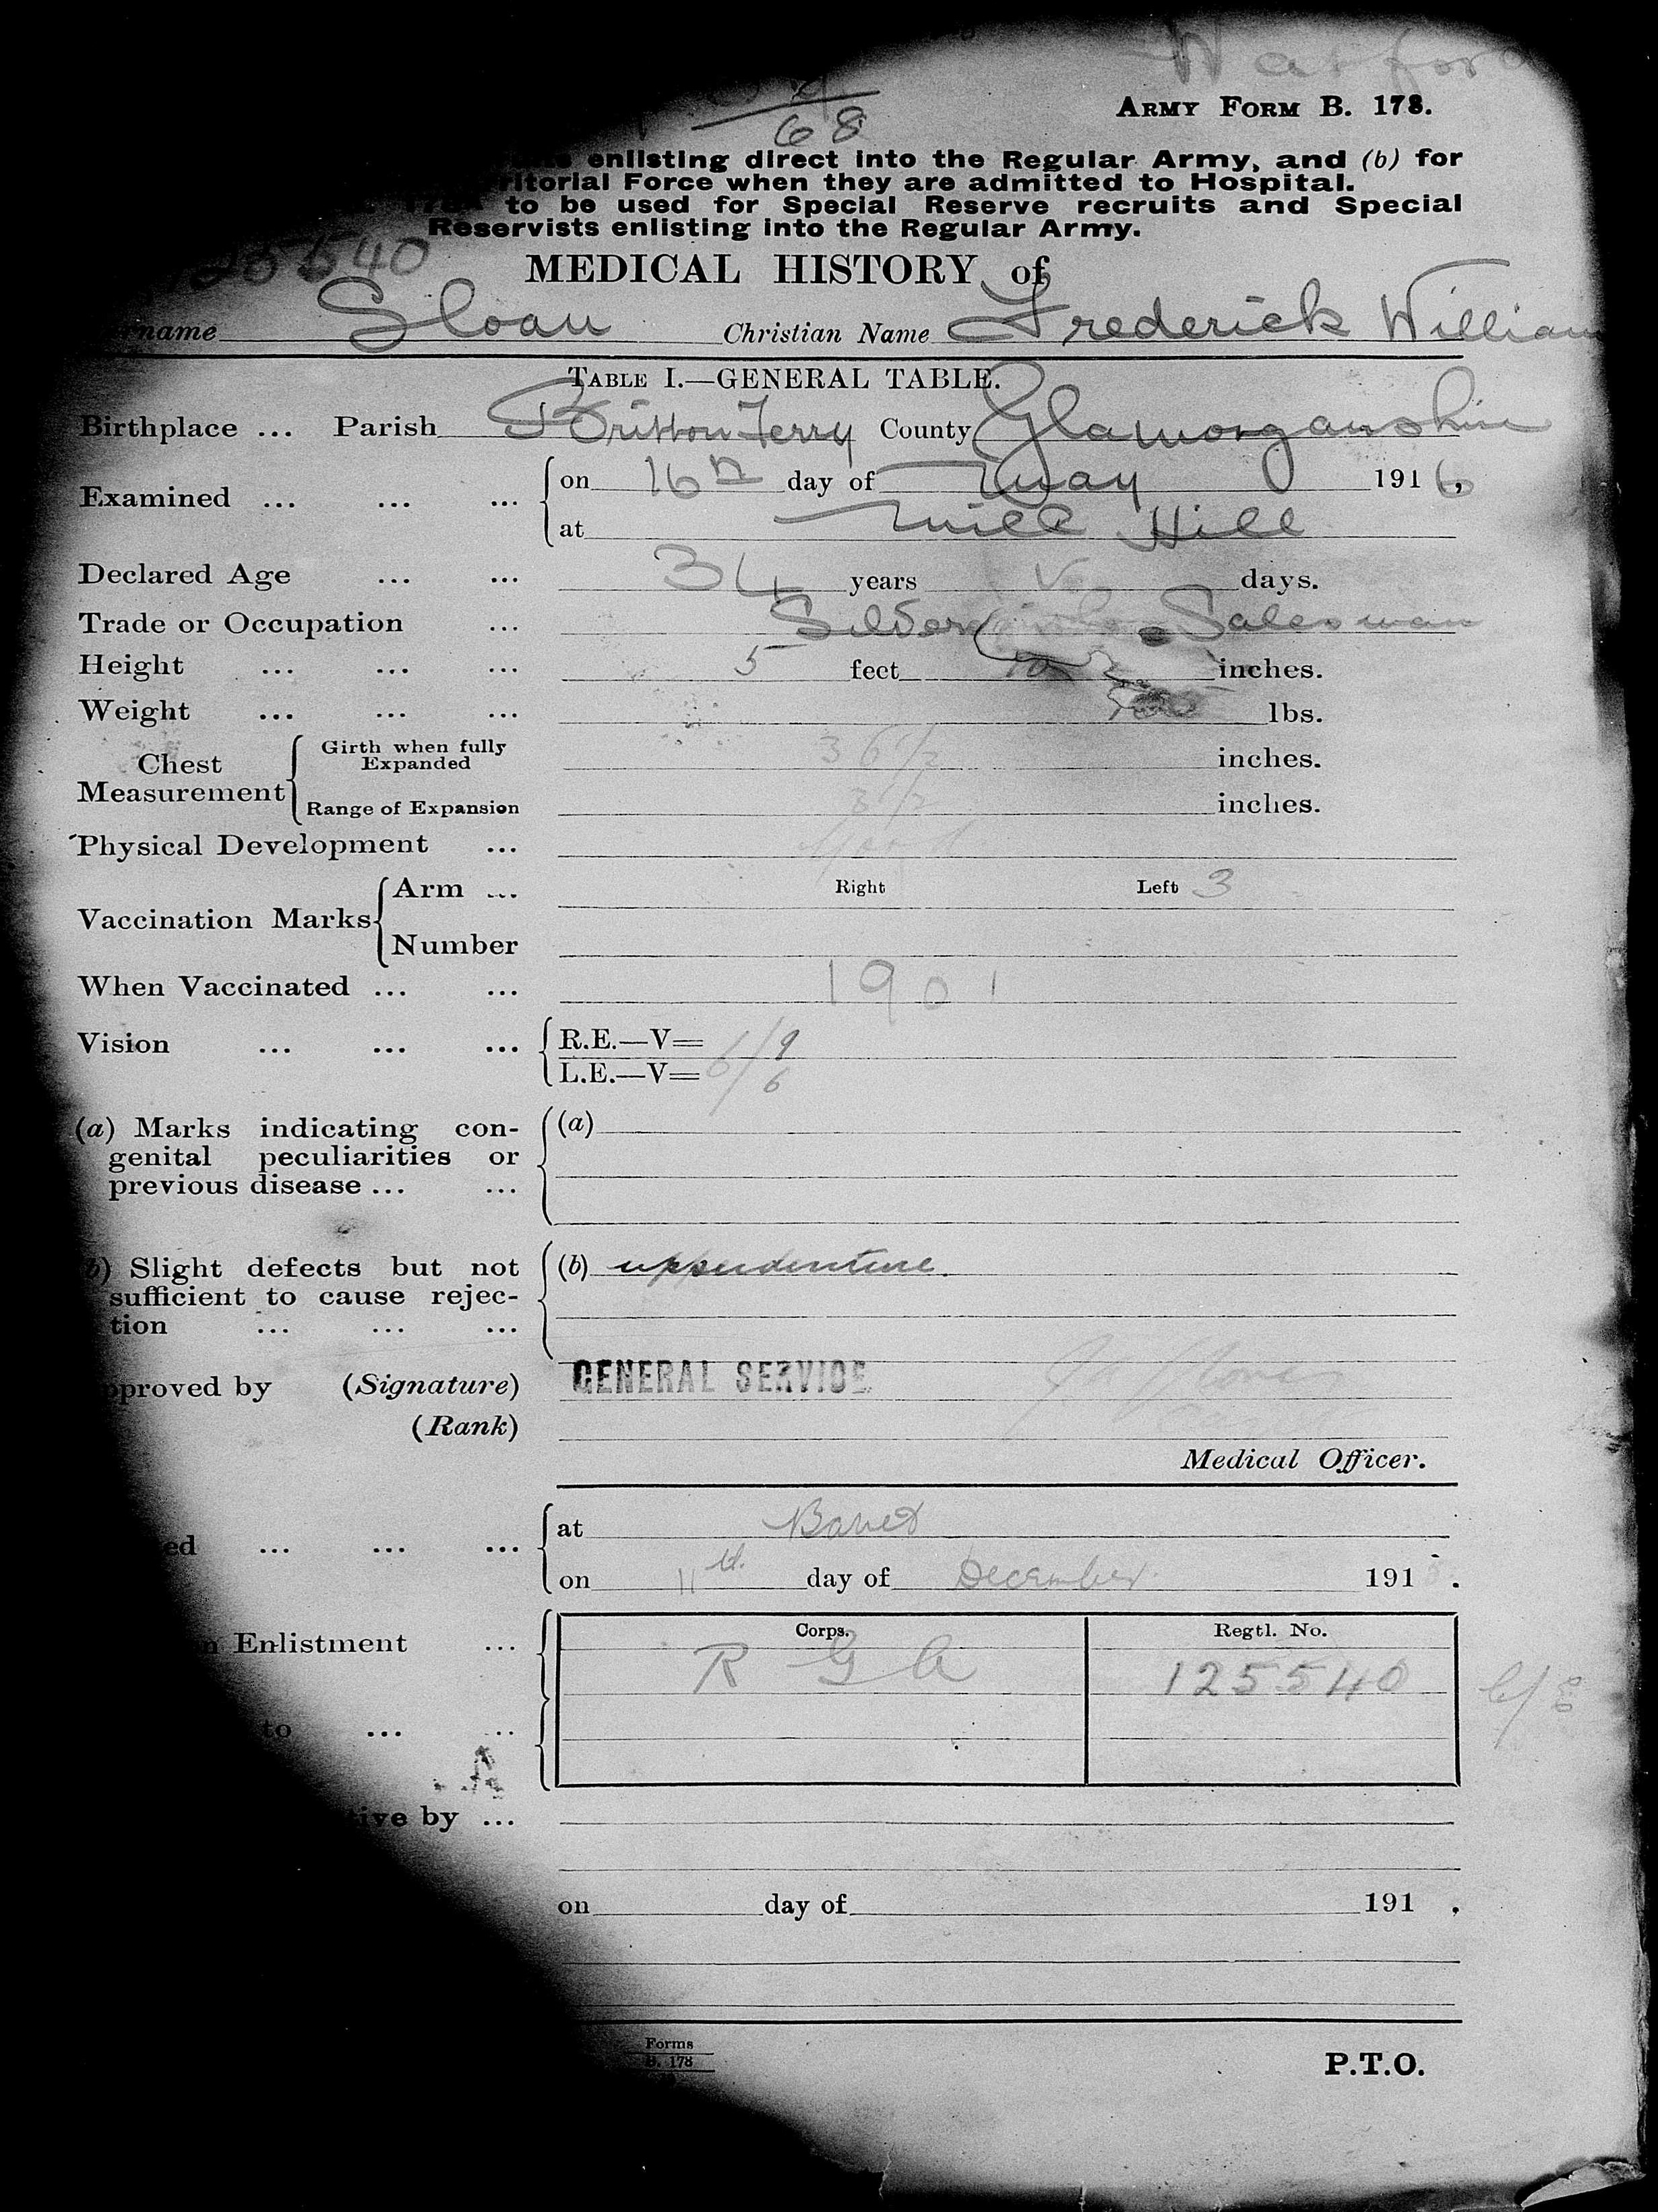 Watford
68
ARMY FORM B. 178.
enlisting direct into the Regular Army, and (b) for
ritorial Force when they are admitted to Hospital.
to be used for Special Reserve recruits and Special
Reservists enlisting into the Regular Army.
125540
MEDICAL HISTORY of
rname Sloan Christian Name Frederick William
TABLE I.—GENERAL TABLE.
Birthplace ... Parish Britton Ferry County Glamorganshire
Examined ... ... ... on 16th day of May 1916,
at Mill Hill
Declared Age ... ... 34 years days.
Trade or Occupation ... Silver Salesman
Height ... ... ... 5 feet 10 inches.
Weight ... ... ... lbs.
Chest Measurement Girth when fully Expanded 36 1/2 inches.
Range of Expansion 3 1/2 inches.
Physical Development ...
Vaccination Marks Arm ... Right Left 3
Number
When Vaccinated ... ... 1901
Vision ... ... ... R.E.—V= 6/9
L.E.—V= 6/6
(a) Marks indicating con- (a)
genital peculiarities or
previous disease ... ...
b) Slight defects but not (b) upper denture.
sufficient to cause rejec-
tion ... ... ...
pproved by (Signature) GENERAL SERVICE
(Rank)
Medical Officer.
ed ... ... ... at Barnet
on 11th day of December 191 .
n Enlistment ... Corps. Regtl. No.
R G A 125540
to ... ..
tive by ...
on day of 191 .
Forms
B. 178
P.T.O.